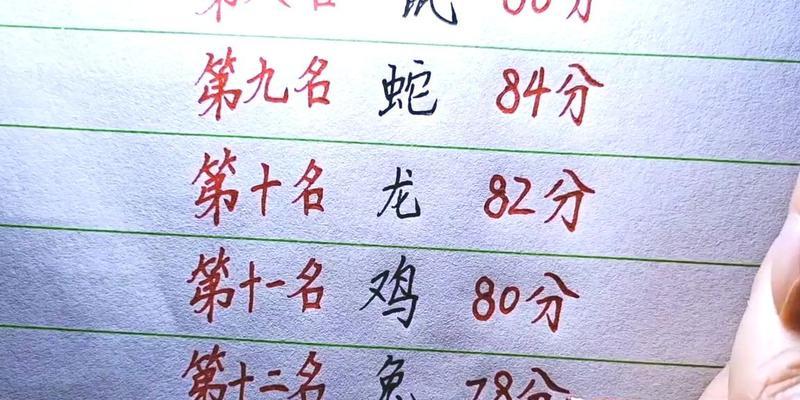 第八名 鼠 86分
第九名 蛇 84分
第十名 龙 82分
第十一名 鸡 80分
第十二名 兔 78分